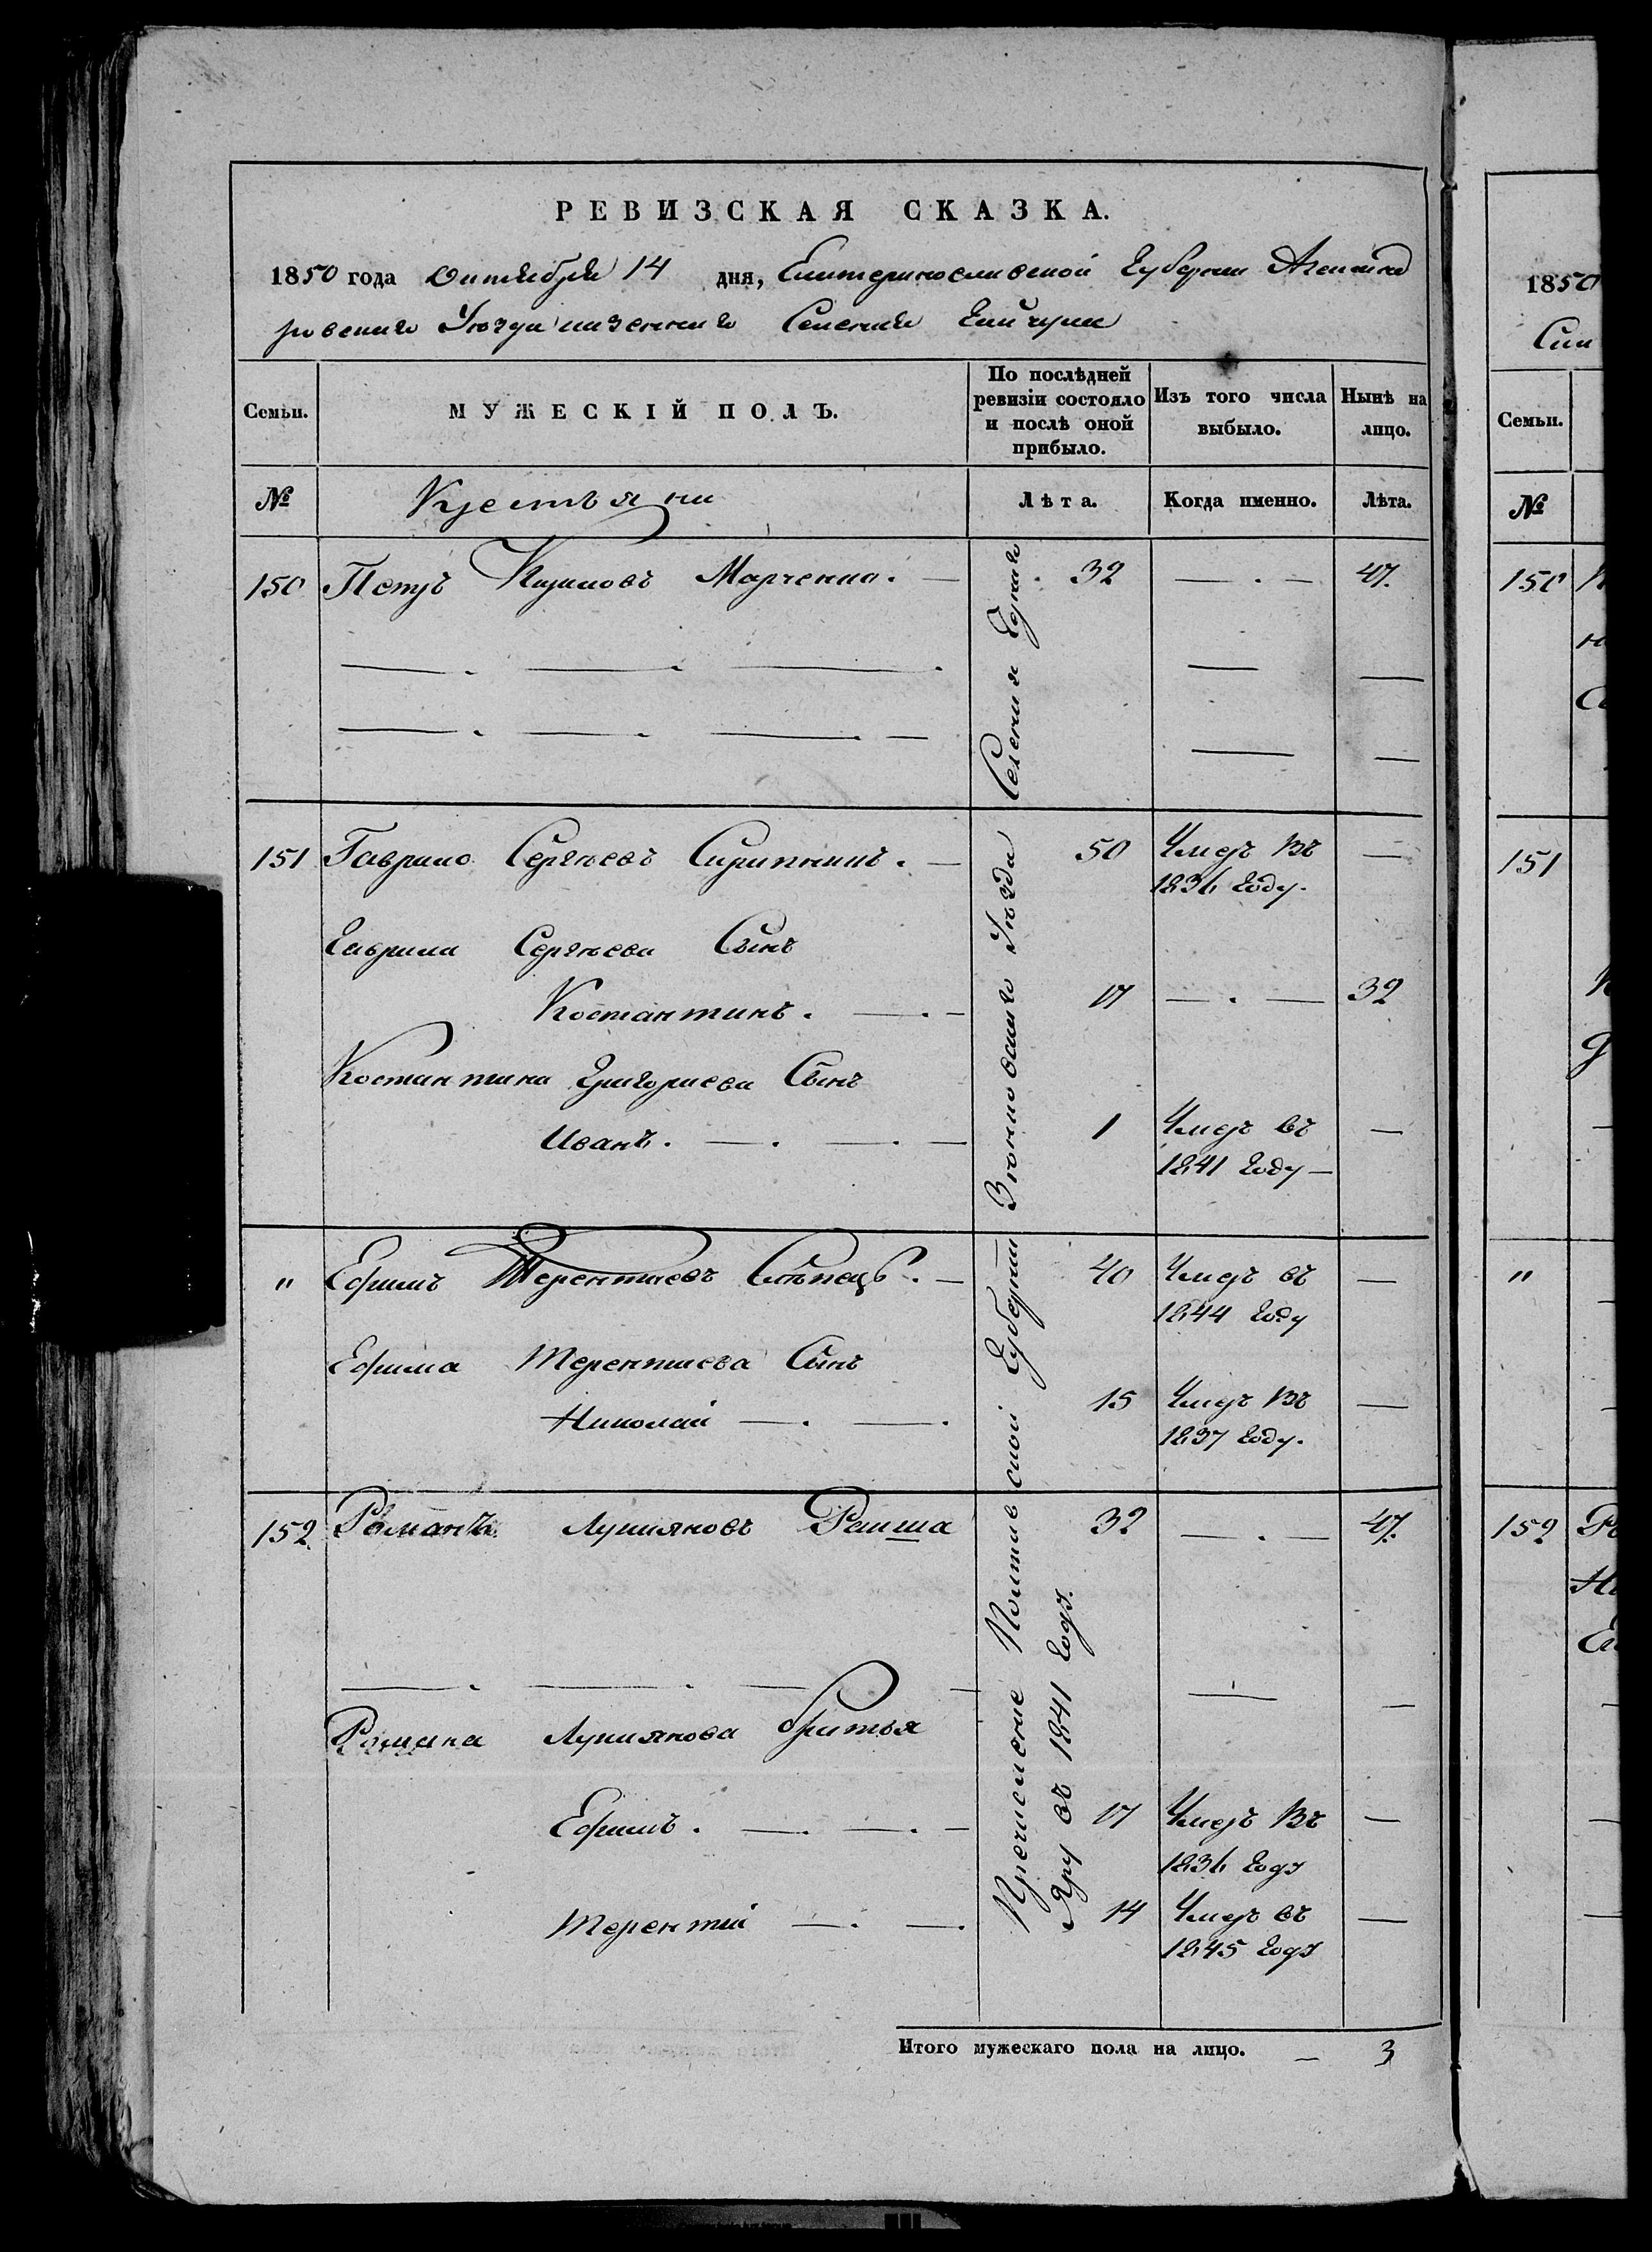 РЕВИЗСКАЯ СКАЗКА.
1850 года Октября 14 дня, Екатеринославской Губернии Александ
ровскаго Уезда казеннаго Селения
Семьи.
МУЖЕСКІЙ ПОЛЪ.
По послѣдней ревизіи состояло и послѣ оной прибыло.
Изъ того числа выбыло.
Нынѣ на лицо.
№
Крестьяне
Лѣта.
Когда именно.
Лѣта.
150 Петръ Марченко. 32 — . — 47.
151 Гаврило Сергѣевъ 50 Умеръ въ —
1836 году.
Гаврила Сергѣева Сынъ
Костантинъ. — . — 17 — . — 32
Костантина Григориева Сынъ
Иванъ. — . — . — 1 Умеръ въ —
1841 году —
" Ефимъ Терентиевъ Слѣпецъ. — 40 Умеръ въ —
1844 году
Ефима Терентиева Сынъ
Николай — . — . 15 Умеръ въ —
1837 году.
152 Романъ Лукияновъ 32 — . — 47.
Романа Лукиянова братья
Ефимъ. — . — . — 17 Умеръ въ —
1836 году
Терентій — . — . 14 Умеръ въ —
1845 году
Полтавской Губернии Зѣньковскаго уѣзда Селения
Яру въ 1841 году.
Итого мужескаго пола на лицо. — 3
1850
Семьи.
№
150
151
"
152